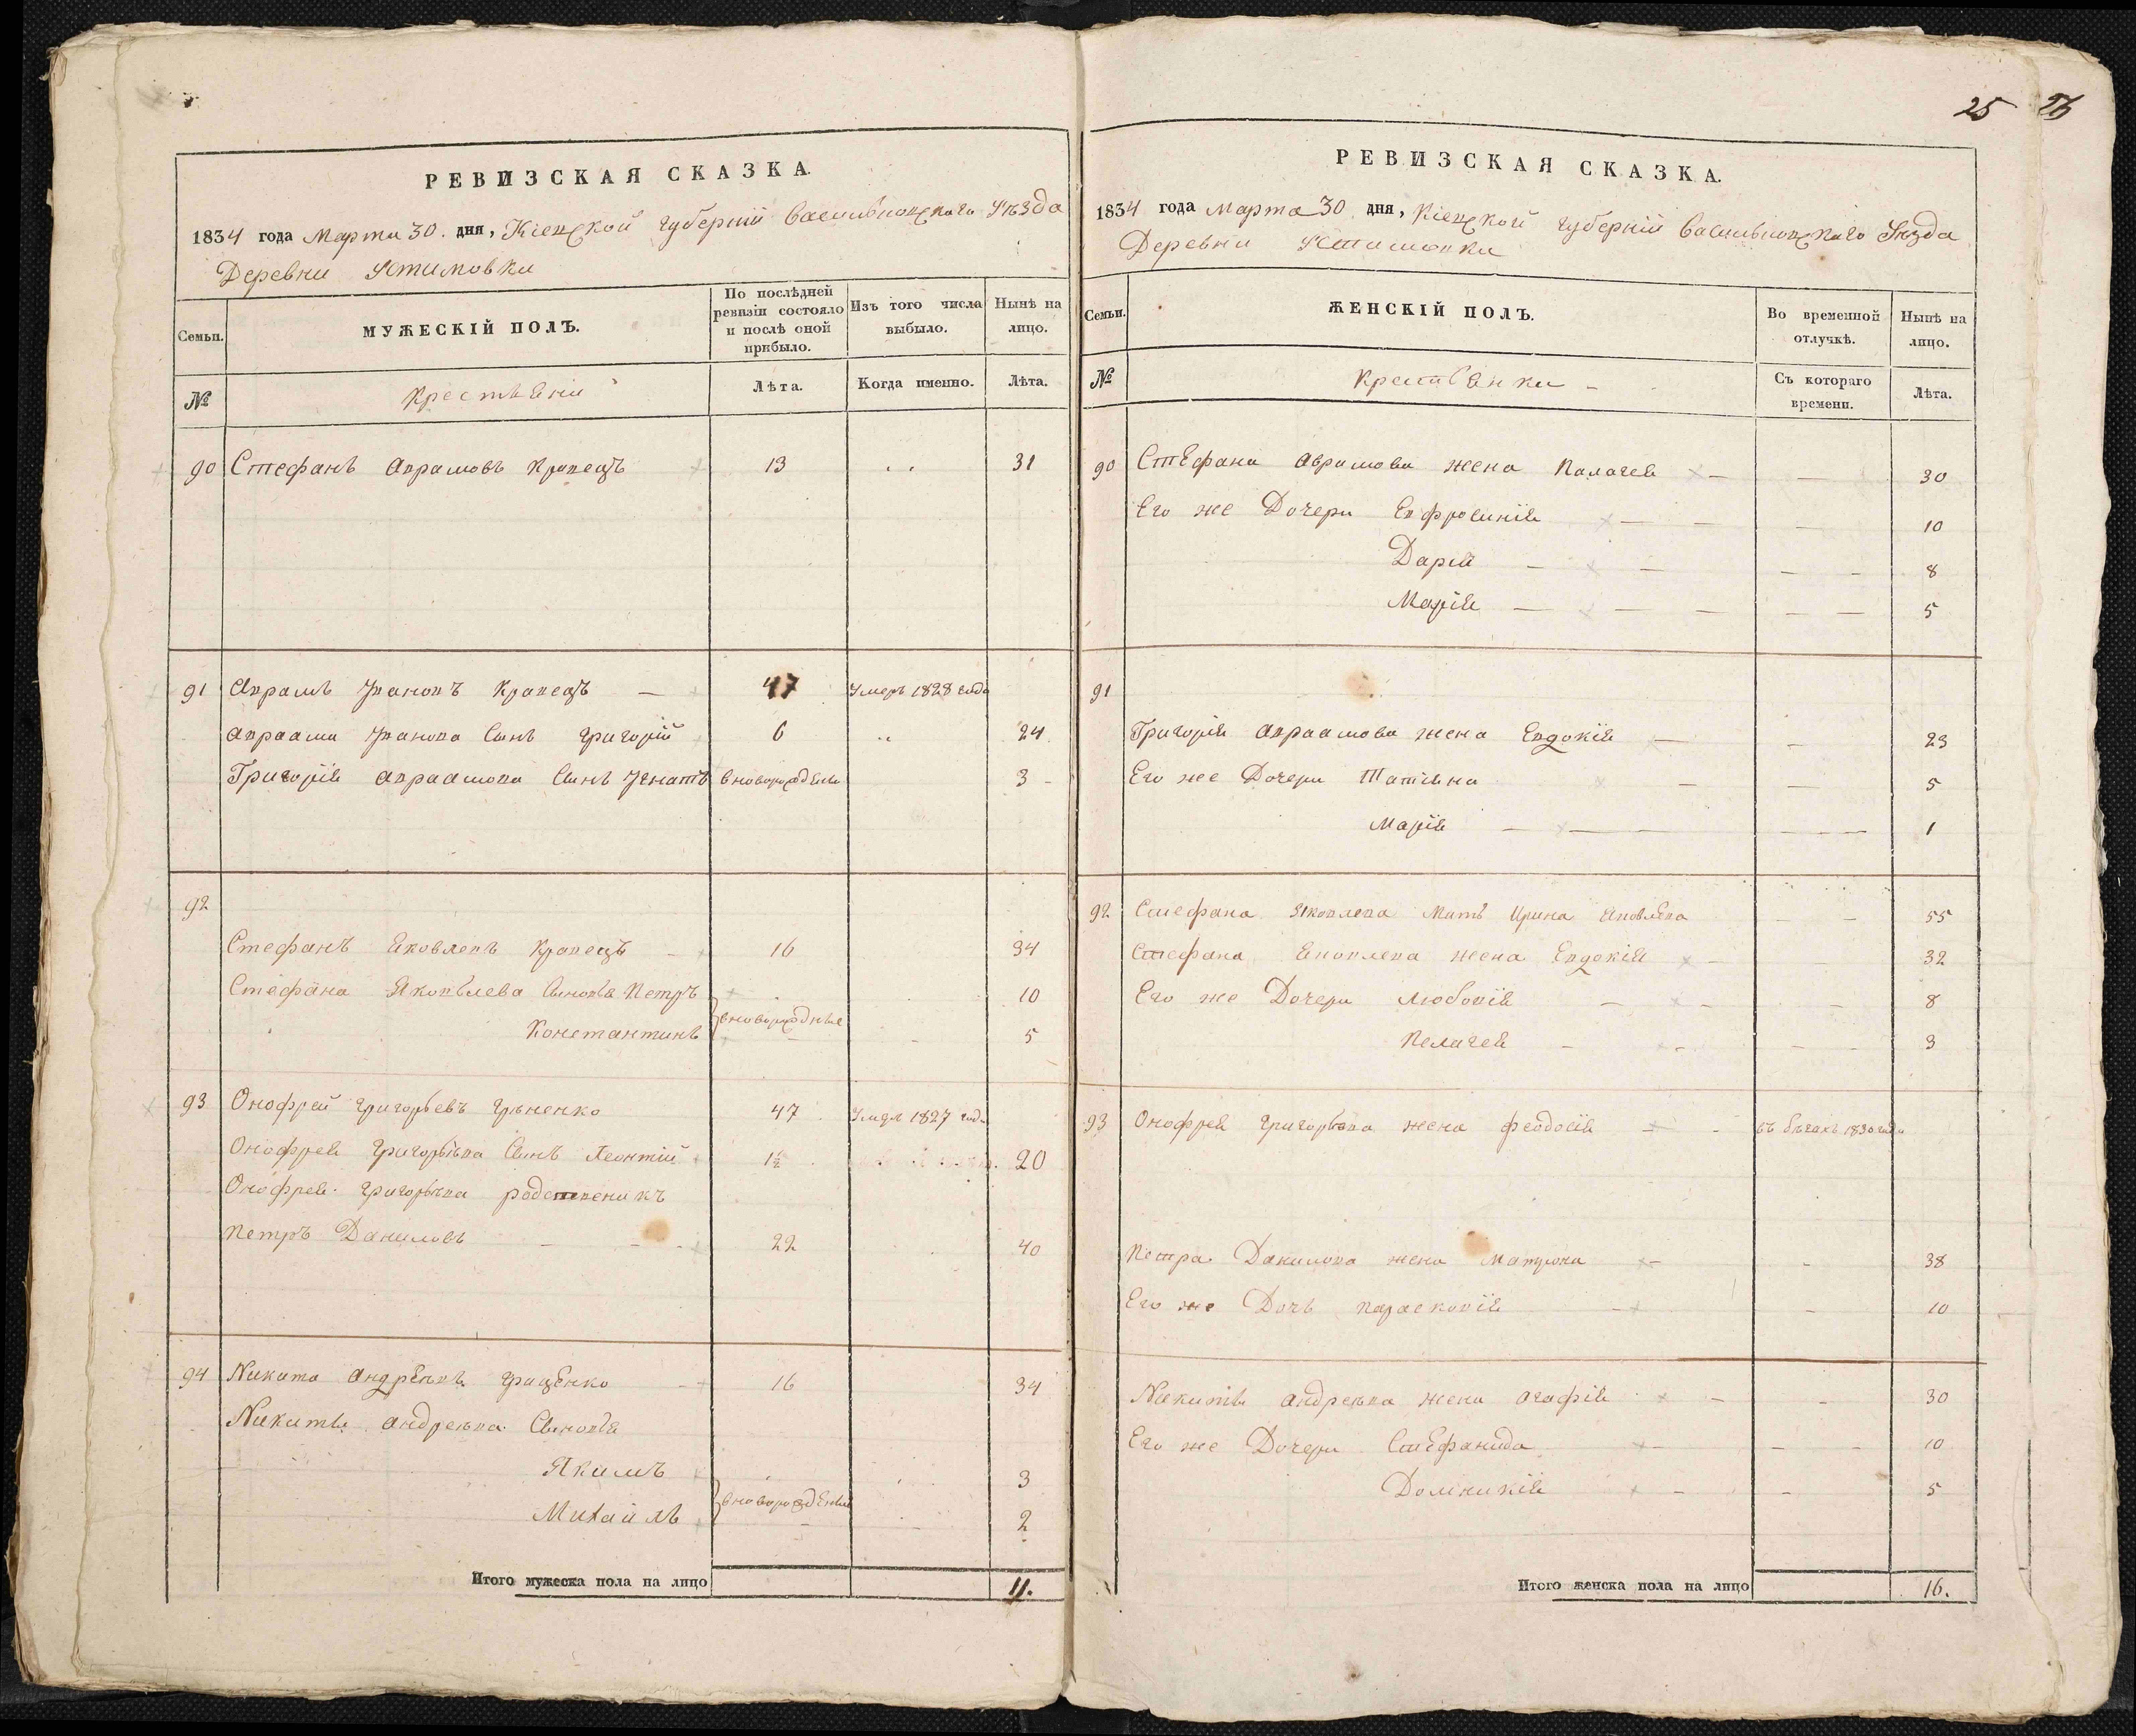 25 26
РЕВИЗСКАЯ СКАЗКА.
1834 года Марта 30. дня, Кіевской губерніи Васильковскаго Уѣзда
Деревни Устимовки
Семьи.
МУЖЕСКІЙ ПОЛЪ.
По послѣдней ревизіи состояло и послѣ оной прибыло.
Изъ того числа выбыло.
Нынѣ на лицо.
№
Крестьяни
Лѣта.
Когда именно.
Лѣта.
90 Стефанъ Аврамовъ Кравецъ 13 31
91 Аврамъ Ивановъ Кравецъ — 47 Умеръ 1828 года
Авраама Иванова Сынъ Григорій 6 24
Григорія Авраамова Сынъ Игнатъ вноворожденъ 3
92
Стефанъ Яковлевъ Кравецъ 16 34
Стефана Яковлева Сыновья Петръ 10
вноворождные
Константинъ 5
93 Онофрей Григорьевъ Гриненко 47 Умеръ 1827 года
Онофрея Григорьева Сынъ Леонтій 1½ 20
Онофрея Григорьева родственикъ
Петръ Даниловъ 22 40
94 Никита Андреевъ Грищенко 16 34
Никиты Андреева Сыновья
Якимъ 3
вноворожденые
Михайлъ 2
Итого мужеска пола на лицо 11.
РЕВИЗСКАЯ СКАЗКА.
1834 года Марта 30 дня, Кіевской губерніи Васильковскаго Уѣзда
Деревни Устимовки
Семьи.
ЖЕНСКІЙ ПОЛЪ.
Во временной отлучкѣ.
Нынѣ на лицо.
№
Крестьянки
Съ котораго времени.
Лѣта.
90 Стефана Аврамова жена Палагея 30
Его же Дочери Евфросинія 10
Дарія 8
Марія 5
91
Григорія Авраамова жена Евдокія 23
Его же Дочери Татіяна 5
Марія 1
92 Стефана Яковлева Мать Ирина Яковлева 55
Стефана Яковлева жена Евдокія 32
Его же Дочери Любовія 8
Пелагея 3
93 Онофрея Григорьева жена Феодосія въ бѣгахъ 1830 года
Петра Данилова жена Матрона 38
Его же Дочь Парасковія 10
Никиты Андреева жена Агафія 30
Его же Дочери Стефанида 10
Доминикія 5
Итого женска пола на лицо 16.